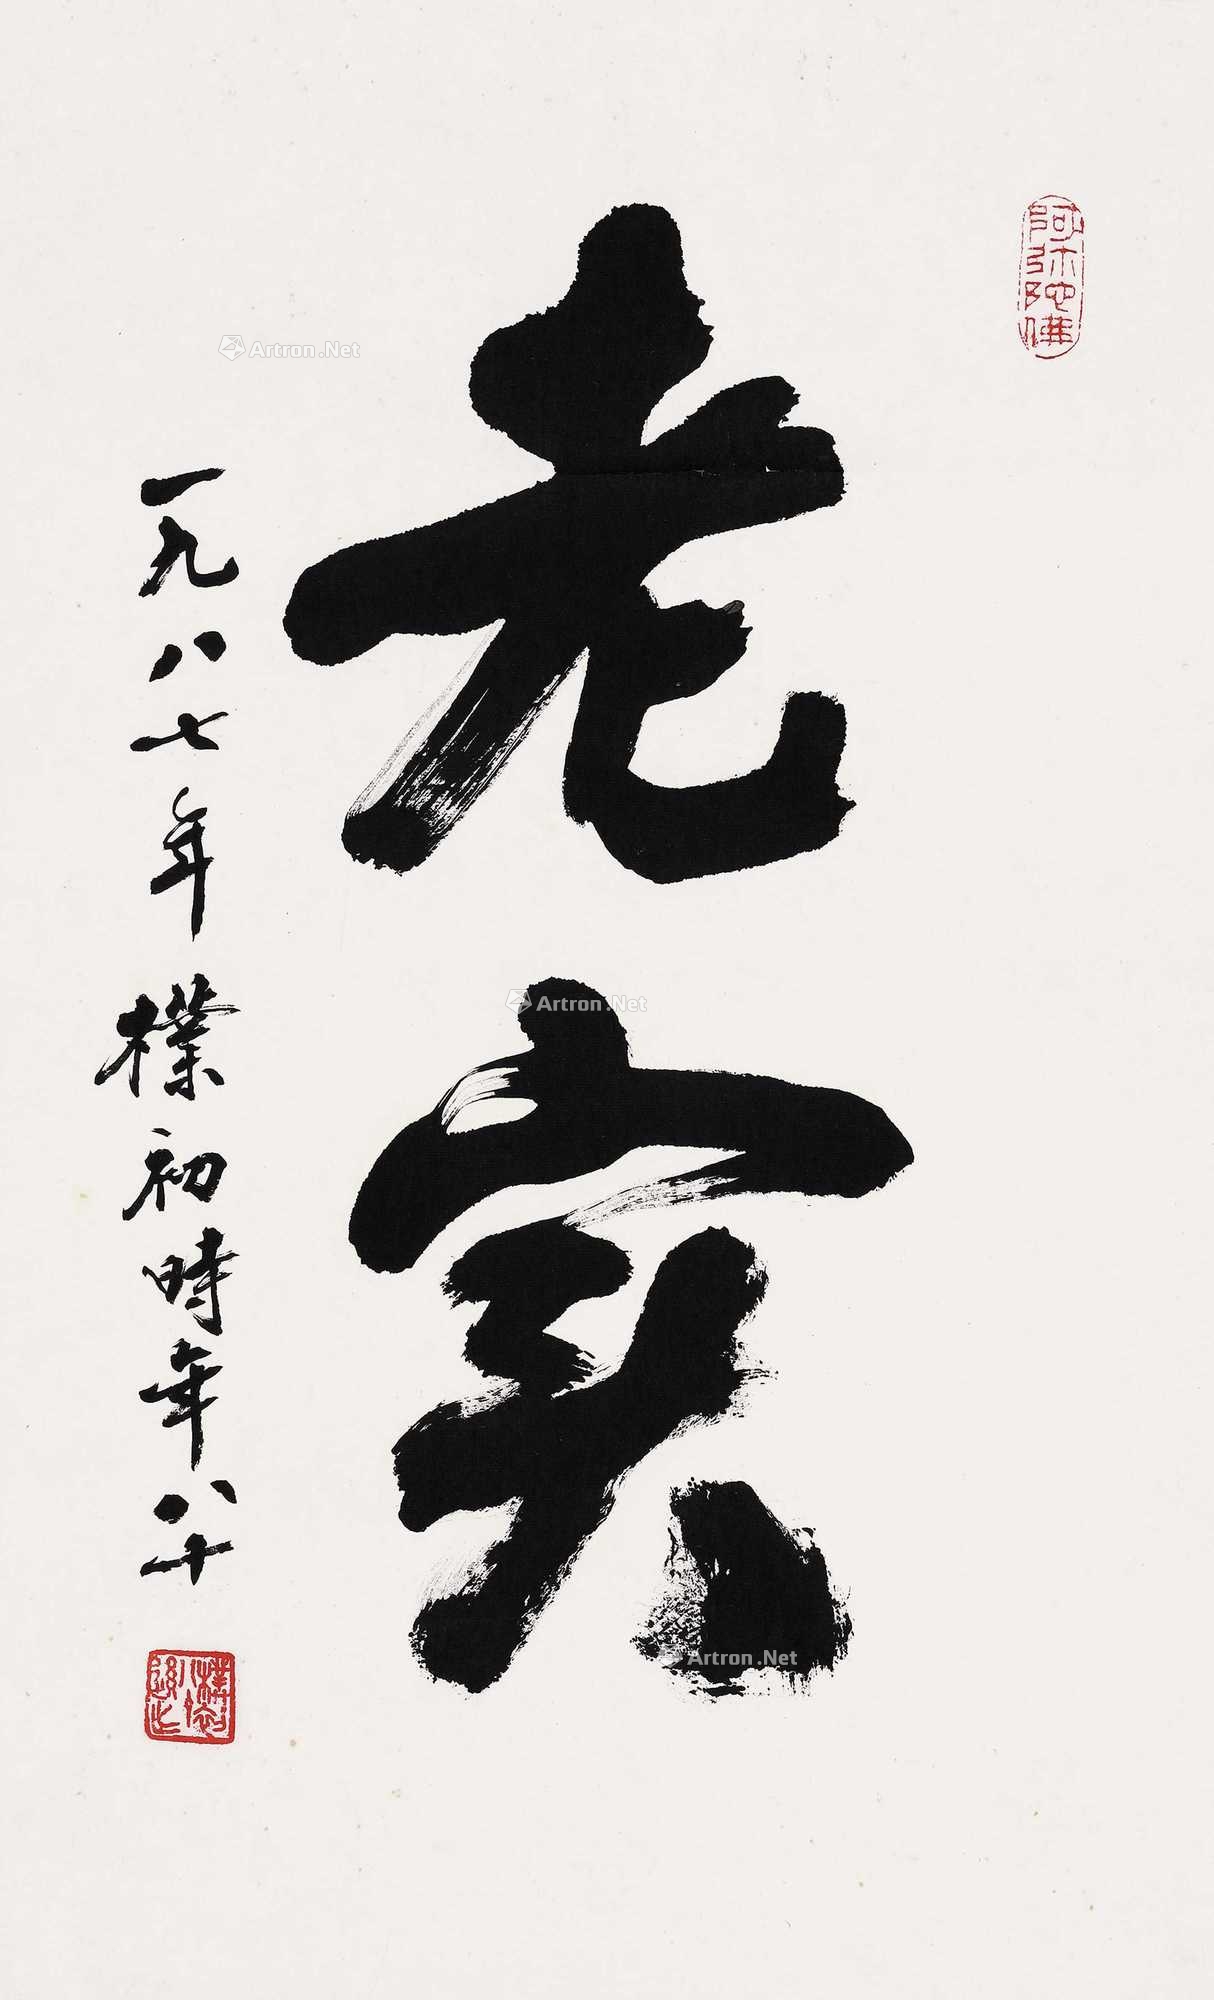 阿弥陀佛
老实
一九八七年樸初時年八十
Artron.Net
Artron.Net
Artron.Net